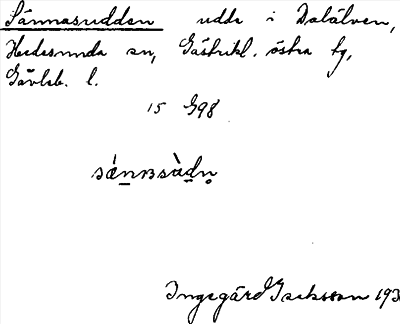 Sännasudden udde i Dalälven,
Hedesunda sn, Gästrikl. östra tg,
Gävleb. l.
15 G98
sánnasàdn
Ingegärd Isaksson 193